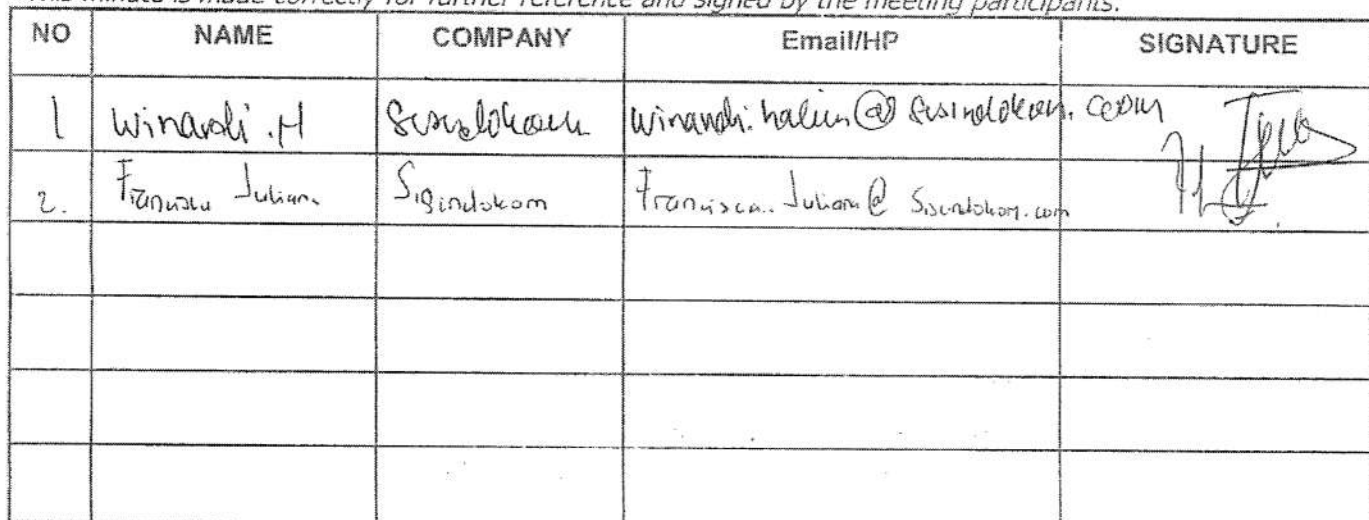 This minute is made correctly for further reference and signed by the meeting participants.
NO NAME COMPANY Email/HP SIGNATURE
1 Winardi .H Sisindokom winardi.halim@sisindokom.com
2. Fransisca Juliana Sisindokom Fransisca.Juliana@sisindokom.com